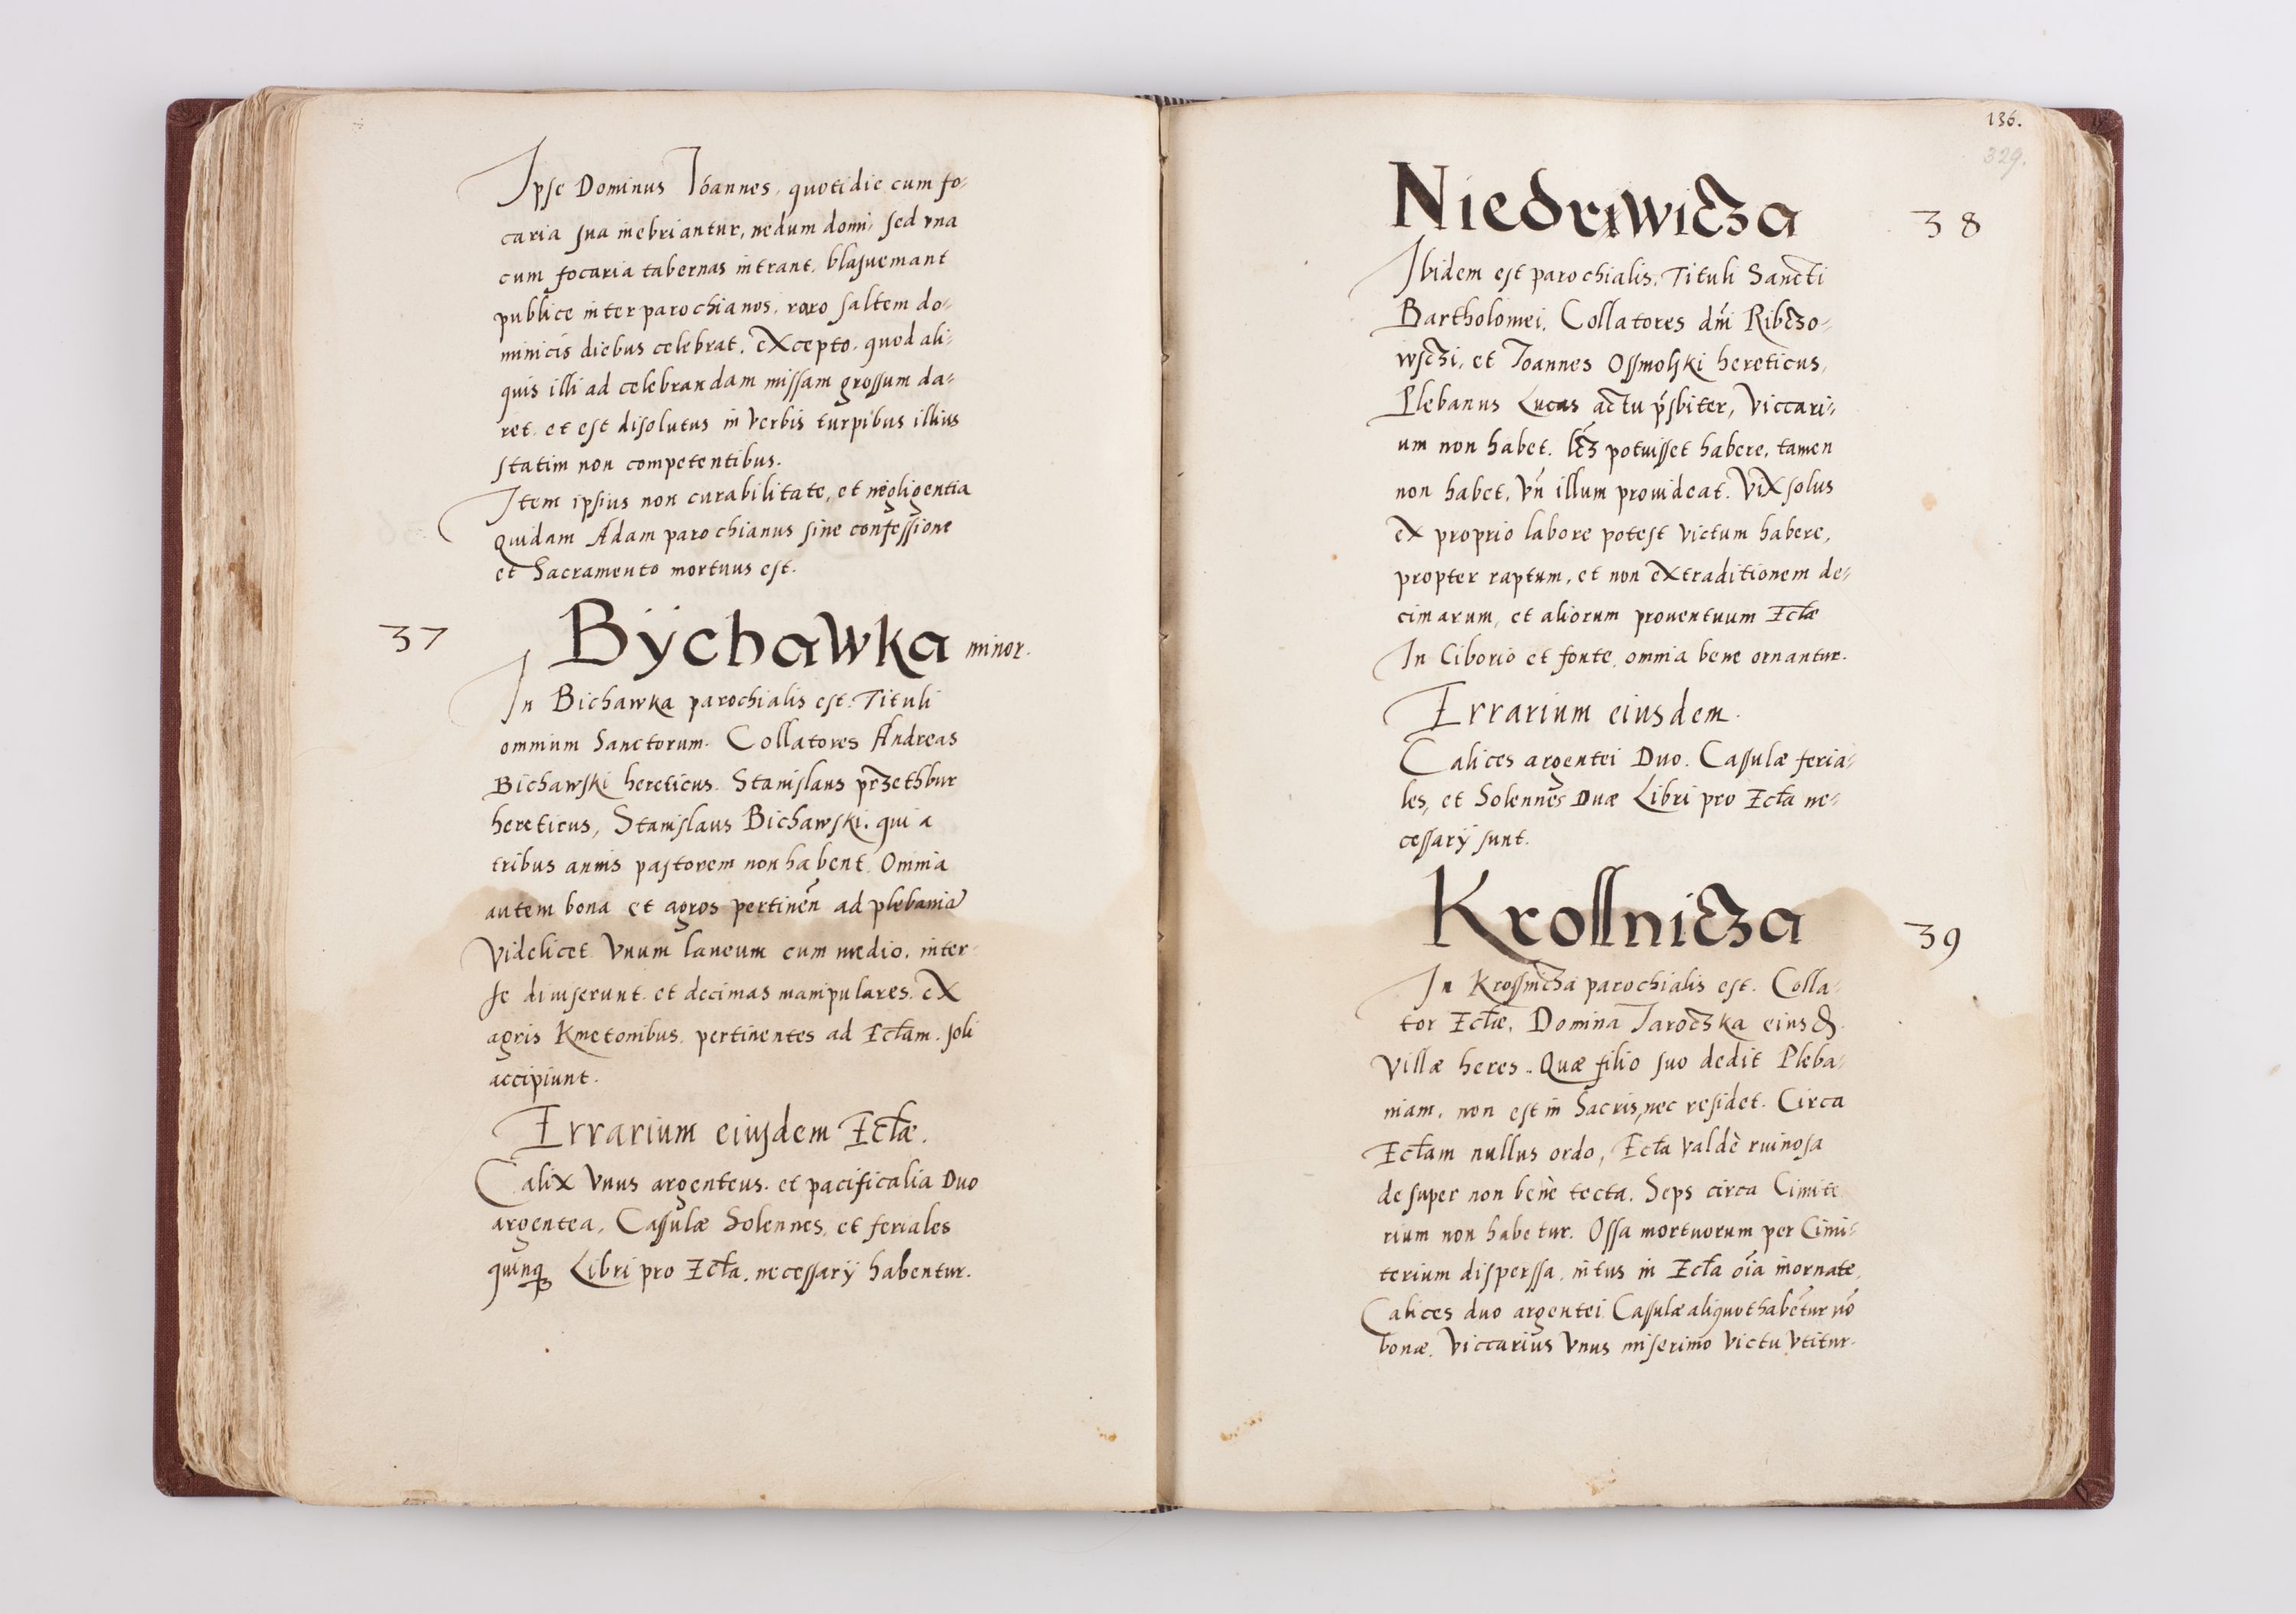 Ipse Dominus Ioannes, quotidie cum fo-
caria sua inebriantur, nedum domi, sed vna
cum focaria tabernas intrant, blasuemant
publice inter parochianos, raro saltem do-
minicis diebus celebrat, excepto, quod ali-
quis illi ad celebrandam missam grossum da-
ret. et est disolutus in verbis turpibus illius
statim non competentibus.
Item ipsius non curabilitate, et negligentia
Quidam Adam parochianus sine confessione
et Sacramento mortuus est.
37
Bÿchawka minor.
In Bichawka parochialis est. Tituli
omnium Sanctorum. Collatores Andreas
Bichawski hereticus. Stanislaus przethbur
hereticus, Stanislaus Bichawski. qui a
tribus annis pastorem non habent. Omnia
autem bona et agros pertinen̄ ad plebaniā
Videlicet Vnum laneum cum medio, inter
se diuiserunt. et decimas manipulares. ex
agris Kmetonibus, pertinentes ad Eccl̄am. soli
accipiunt.
Errarium eiusdem Eccl̄æ.
Calix Vnus argenteus. et pacificalia Duo
argentea, Casulæ Solennes, et feriales
quinqȝ Libri pro Eccl̄a, necessarÿ habentur.
136.
329.
Niedrzwicza
38
Ibidem est parochialis, Tituli Sancti
Bartholomei, Collatores dn̄i Ribczo-
wsczi, et Ioannes Ossmolski hereticus,
Plebanus Lucas actu pr̄sbiter, Viccari-
um non habet. lcꝫ potuisset habere, tamen
non habet, Vn̄ illum prouideat. Vix solus
ex proprio labore potest victum habere,
propter raptum, et non extraditionem de-
cimarum, et aliorum prouentuum Eccl̄æ
In Ciborio et fonte, omnia bene ornantur.
Errarium eiusdem.
Calices argentei Duo. Casulæ feria-
les, et Solennes Duæ Libri pro Eccl̄a ne-
cessarÿ sunt.
Krossnicza
39
In Krossnicza parochialis est. Colla-
tor Eccl̄æ, Domina Iaroczka eiusd.
Villæ heres. Quæ filio suo dedit Pleba-
niam, non est in Sacris, nec residet. Circa
Eccl̄am nullus ordo, Eccl̄a valdè ruinosa
de super non benè tecta. Seps circa Cimite
rium non habetur. Ossa mortuorum per Cimi-
terium disperssa, intus in Eccl̄a oīa inornate,
Calices duo argentei Casulæ aliquot habētur nō
bonæ. Viccarius Vnus miserimo Victu Vtitur.